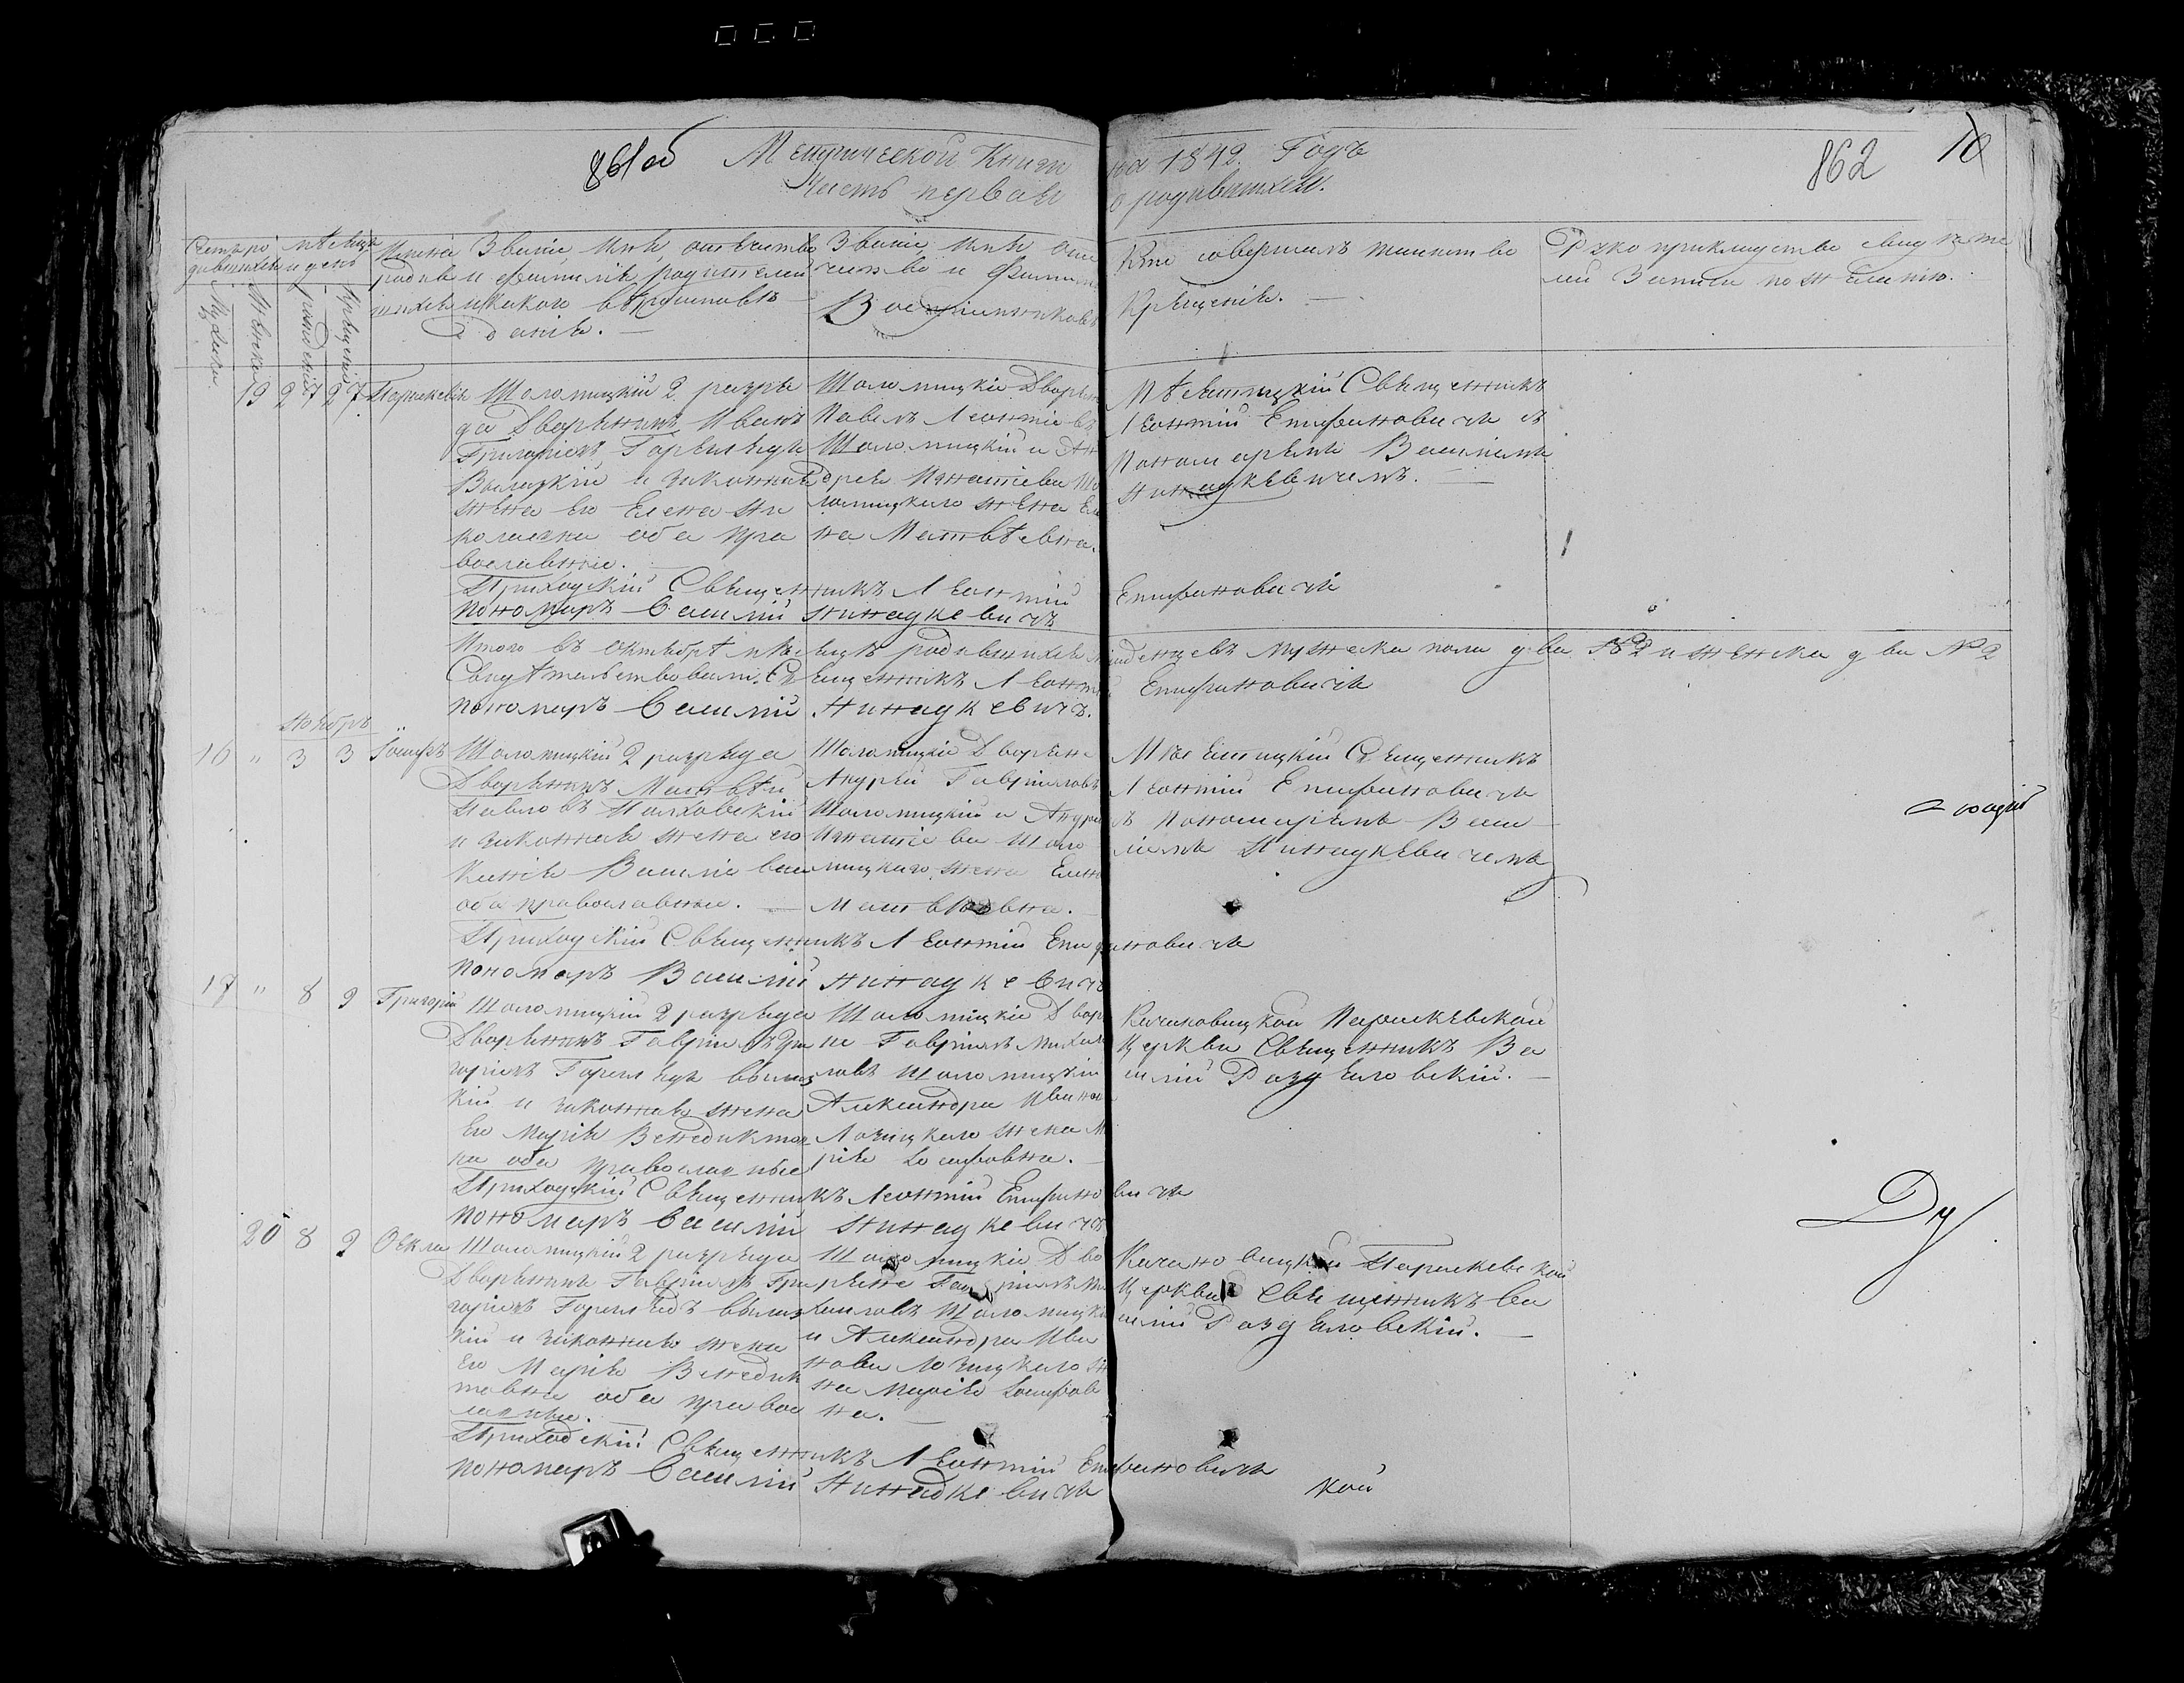 861об Метрической Книги на 1842. Годъ 862 10
Часть первая о родившихся.
Счетъ ро
дившихся
Мужеска
Женска
мѣсяцъ
и день
рожденія
Крещенія
Имена
родив
шихся
Званіе, имя, отечество
и фамилія родителей
и какого вѣроисповѣ
данія. —
Званіе имя оте
чество и фамилія
Воспріемниковъ
Кто совершалъ таинство
Крещенія. —
Рукоприкладство свидѣте
лей Записи по желанію.
19 27 27 Параскевія
Шоломицкій 2. разря
да Дворянинъ Иванъ
Григоріевъ Горегляда
Вылазкій и законная
жена его Елена Ни
колаевна оба пра
вославные.
Шоломицкіе Дворяне
Павелъ Леонтіевъ
Шоломицкій и Ан
дрея Игнатіева Шо
ломицкаго жена Еле
на Матвѣевна.
Мѣсятицкій Священникъ
Леонтій Епифановичъ съ
Пономаремъ Василіемъ
—
Приходскій Священникъ Леонтій Епифановичъ
Пономаръ Василій
Итого въ Октябрѣ мѣсяцѣ родившихся младенцевъ мужеска пола два №2 и женска два №2
Свидѣтельствовали. Священникъ Леонтій Епифановичъ
пономаръ Василій
Ноябрь
16 " 3 3 Іосифъ
Шоломицкій 2 разряда
Дворянинъ Матвѣй
Павловъ
и законная жена его
Ксенія Василіева
оба православные. —
Шоломицкіе Дворяне
Андрей Гавриловъ
Шоломицкій и Андрея
Игнатіева Шоло
мицкаго жена Елена
Матвѣевна. —
Мѣсятицкій Священникъ
Леонтій Епифановичъ
съ Пономаремъ Васи
ліемъ
Приходскій Священникъ Леонтій Епифановичъ
пономаръ Василій
17 " 8 9 Григорій
Шоломицкій 2 разряда
Дворянинъ Гавріилъ Гри
горіевъ Горегляда Вылаз
кій и законная жена
его Марія Венедиктов
на оба православные
Шоломицкіе Дворя
не Гавріилъ Михаи
ловъ Шоломицкій
Александра Иванова
Лозицкаго жена Ма
рія Іосифовна. —
Качановицкой Параскевской
Церкви Священникъ Ва
силій Раздяловскій. —
Приходскій Священникъ Леонтій Епифановичъ
пономаръ Василій
20 8 9 Ѳекла
Шоломицкій 2 разряда
Дворянинъ Гавріилъ Гри
горіевъ Гореглядъ Вылаз
кій и законная жена
его Марія Венедик
товна оба правос
лавные. —
Шоломицкіе Дво
ряне Гавріилъ Ми
хаиловъ Шоломицкій
и Александра Ива
нова Лозицкаго же
на Марія Іосифов
на. —
Качановицкой Параскевской
Церкви Священникъ Ва
силій Раздяловскій. —
Приходскій Священникъ Леонтій Епифановичъ
пономаръ Василій
кой